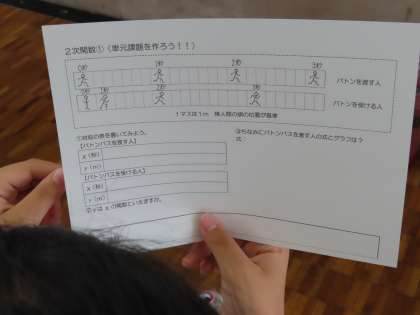 2次関数①(単元課題を作ろう!!)
0秒 1秒 2秒 3秒
バトンを渡す人
0秒 1秒 2秒 3秒
バトンを受ける人
1マスは1m 棒人間の頭の位置が基準
①対応の表を書いてみよう。
【バトンパスを渡す人】
x(秒)
y(m)
【バトンパスを受ける人】
x(秒)
y(m)
②yはxの関数といえますか。
③ちなみにバトンパスを渡す人の式とグラフは?
式: